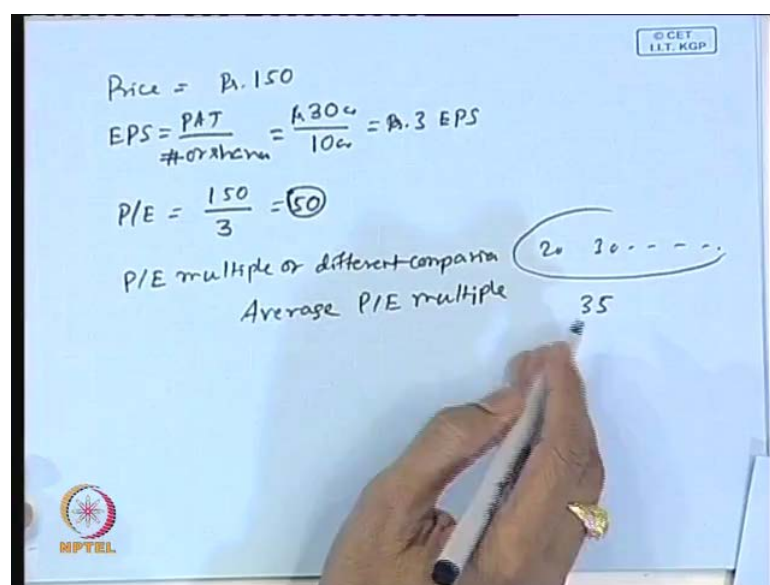 © CET
I.I.T. KGP
Price = Rs. 150
EPS = PAT / # of shares = Rs 30 cr / 10 cr = Rs. 3 EPS
P/E = 150 / 3 = 50
P/E multiple of different companies 20 30 - - - - -
Average P/E multiple 35
NPTEL